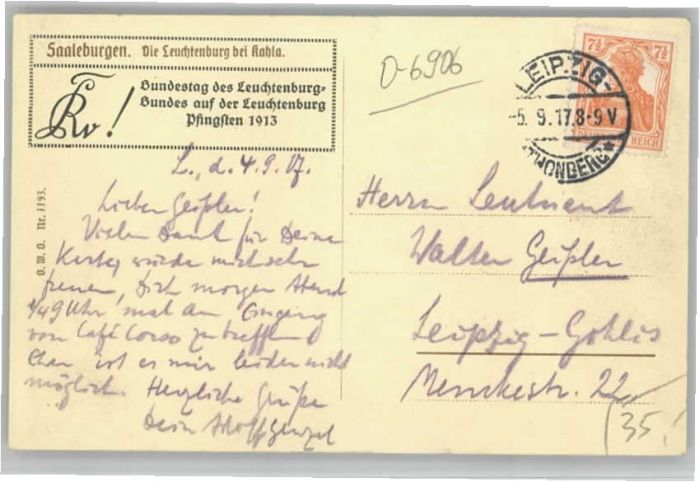 Saaleburgen. Die Leuchtenburg bei Kahla.
Bundestag des Leuchtenburg-
Bundes auf der Leuchtenburg
Pfingsten 1913
O.W.O. Nr. 1193.
0-6906
LEIPZIG-
-5. 9. 17. 8-9 V
7½ 7½
DEUTSCHES REICH
L., d. 4.9.17.
Lieber Geißler!
Vielen Dank für Deine
Karte, würde mich sehr
freuen, Dich morgen Abend
¼9 Uhr mal am Eingang
von Café Corso zu treffen
Eher ist es mir leider nicht
möglich. Herzliche Grüße
Dein Adolf
Herrn Leutnant
Walter Geißler
Leipzig-Gohlis
Menckestr. 22
35.